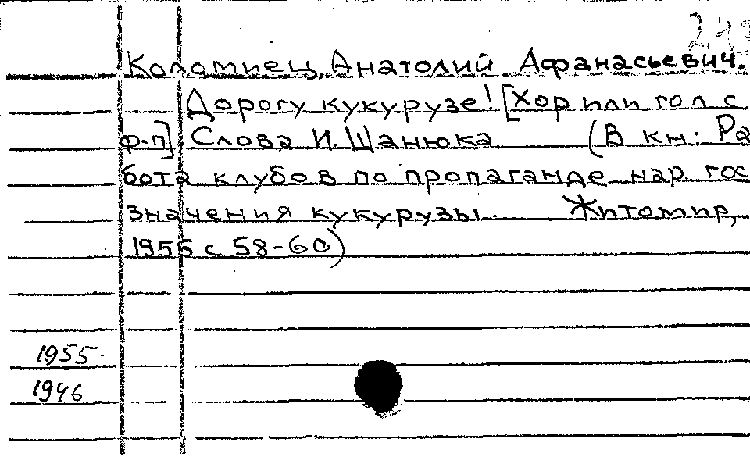 249
Коломиец, Анатолий Афанасьевич.
Дорогу кукурузе! [Хор или гол с
ф-п] Слова И. Шанюка (В кн: Ра
бота клубов по пропаганде нар гос
значения кукурузы Житомир,
1955 с 58-60)
1955
1946